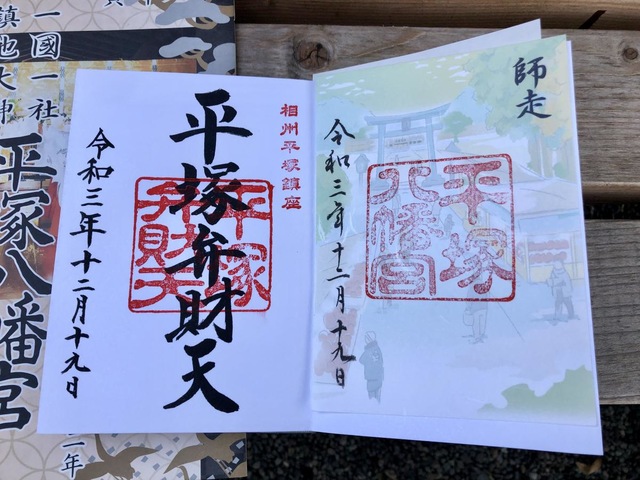 師走
平塚
八幡宮
令和三年十二月十九日
相州平塚鎮座
平塚弁財天
平塚
弁財天
令和三年十二月十九日
一國一社
鎮地大神
平塚八幡宮
年